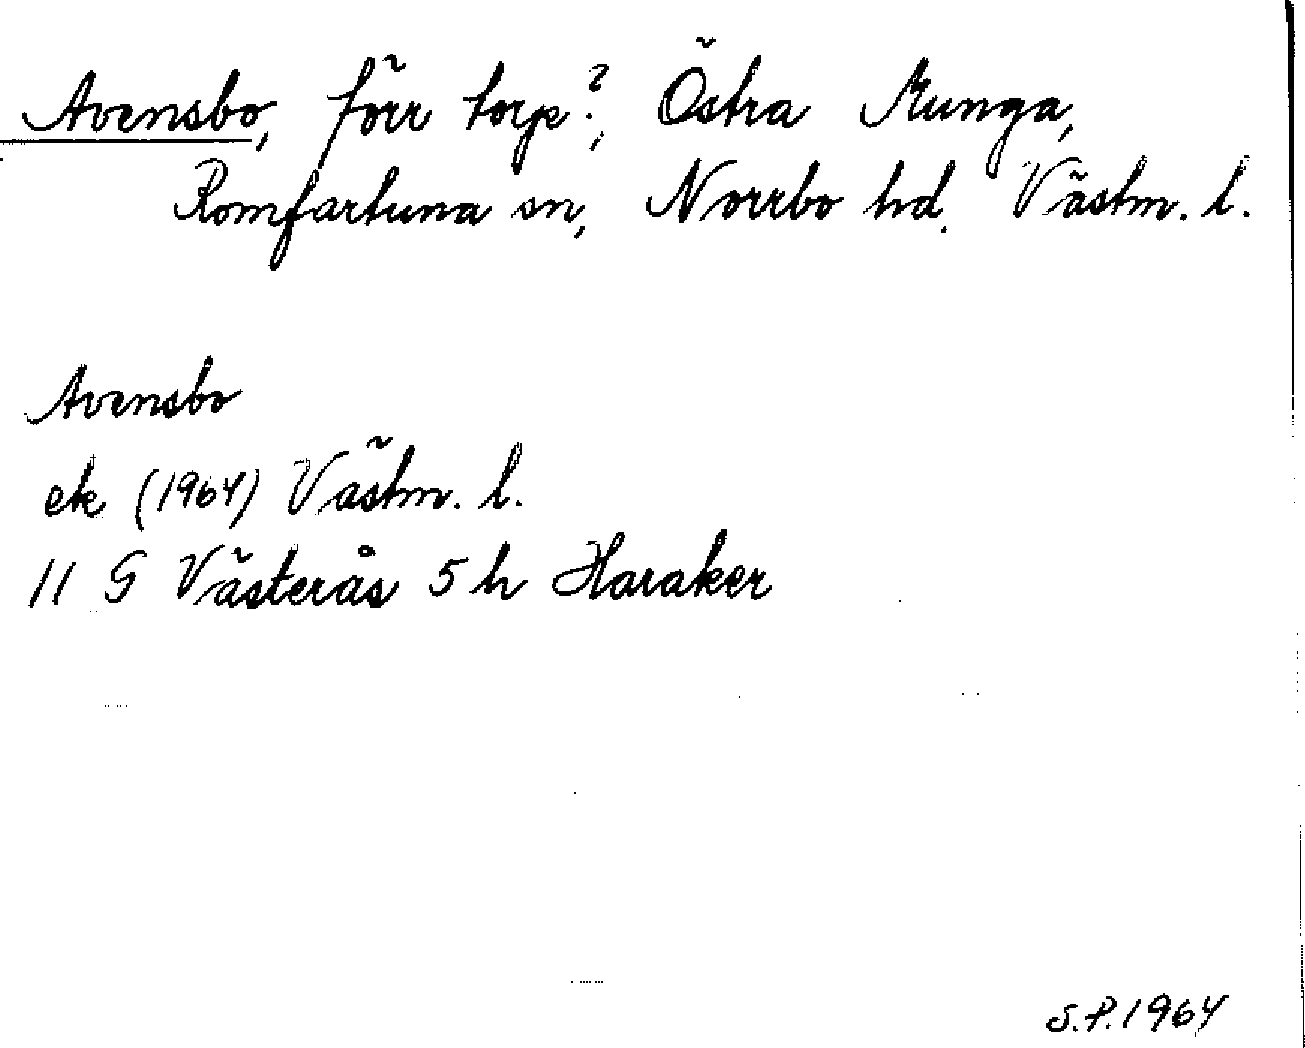 Avensbo, förr torp?, Östra Munga,
Romfartuna sn, Norrbo hd. Västm. l.
Avensbo
ek (1964) Västm. l.
11 G Västerås 5 h Haraker
S.P.1964